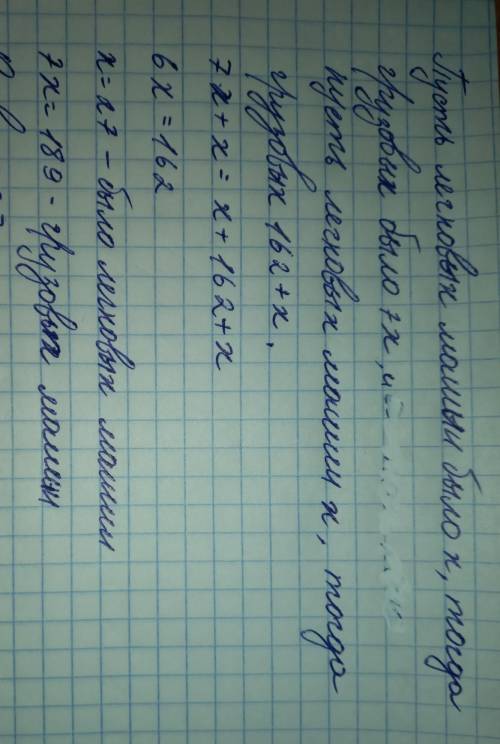 Пусть легковых машин было х, тогда
грузовых было 7х, и
пусть легковых машин х, тогда
грузовых 162+х.
7х+х = х+162+х
6х = 162
х = 27 - было легковых машин
7х = 189 - грузовых машин